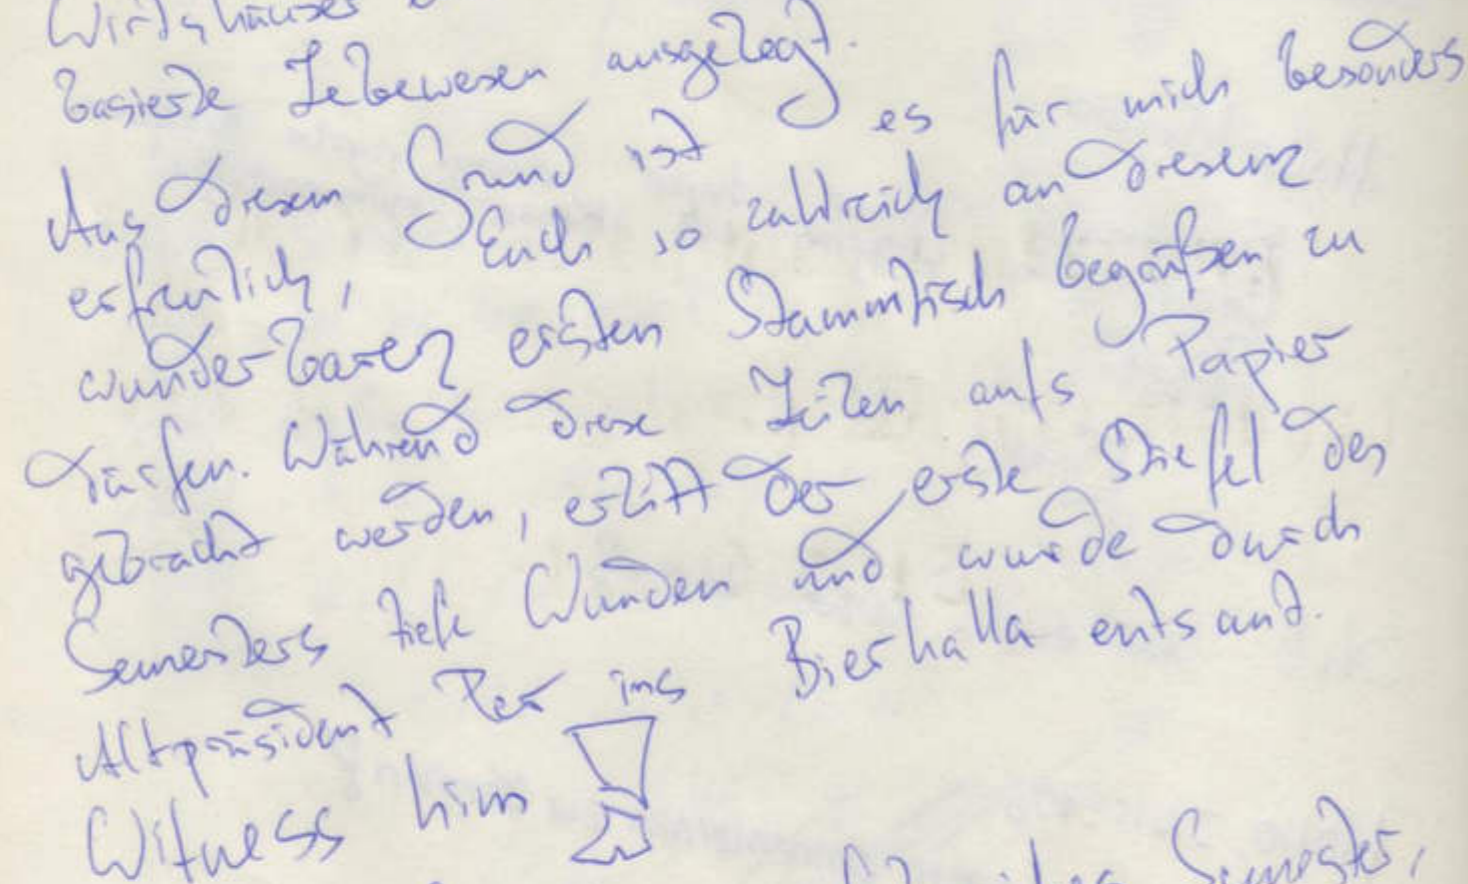 Wirtshäuser
basierte Lebewesen ausgelegt.
Aus diesem Grund ist es für mich besonders
erfreulich, Euch so zahlreich an diesem
wunderbaren ersten Stammtisch begrüßen zu
dürfen. Während diese Zeilen aufs Papier
gebracht werden, erlitt der erste Stiefel des
Semesters tiefe Wunden und wurde durch
Altpräsident Per ins Bierhalla entsandt.
Witness him
Semester,